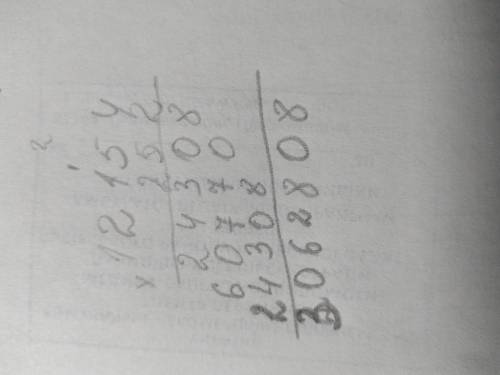 2
1
12154
× 252
24308
60770
24308
3062808